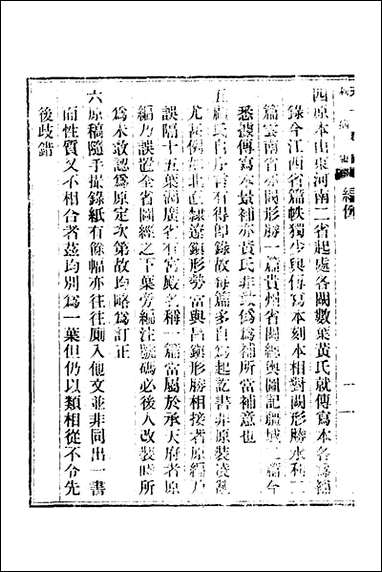 編例
四原本山東河南二省起處各闕數葉黃氏就傳寫本各爲補
錄今江西省篇帙獨少與傳寫本刻本相對闕形勝水利二
篇雲南省亦闕形勝一篇貴州省闕經輿圖記疆域二篇今
悉據傳寫本景補亦黃氏非以爲爲補所當補意也
五顧氏自序言有得即錄故每篇多自爲起訖書非原裝淩亂
尤甚如北直隸遼鎮形勢當與昌鎮形勝相接者原編乃
誤隔十五葉湖廣省有宮殿之稱一篇當屬於承天府者原
編乃誤置全省圖經之下葉旁編注號碼必後人改裝時所
爲未敢認爲原定次第故均略爲訂正
六原稿隨手撮錄紙有餘幅亦往往厠入他文並非同出一書
而性質又不相合者茲均別爲一葉但仍以類相從不令先
後歧錯